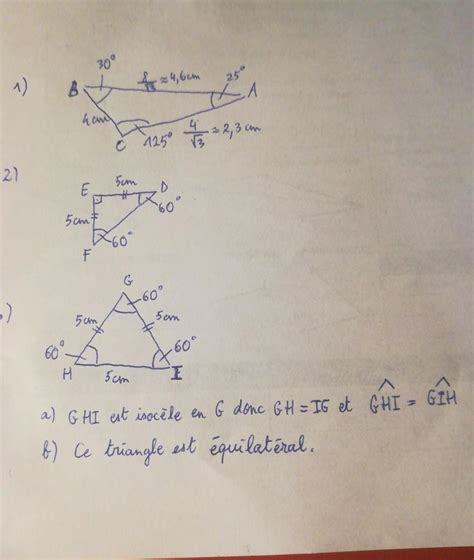 1)
30°
8/√3 ≈ 4,6cm
25°
B
A
4cm
C
125°
4/√3 ≈ 2,3cm
2)
E
5cm
D
5cm
60°
60°
F
)
G
60°
5cm
5cm
60°
60°
H
5cm
I
a) GHI est isocèle en G donc GH = IG et GHI = GIH
b) Ce triangle est équilatéral.